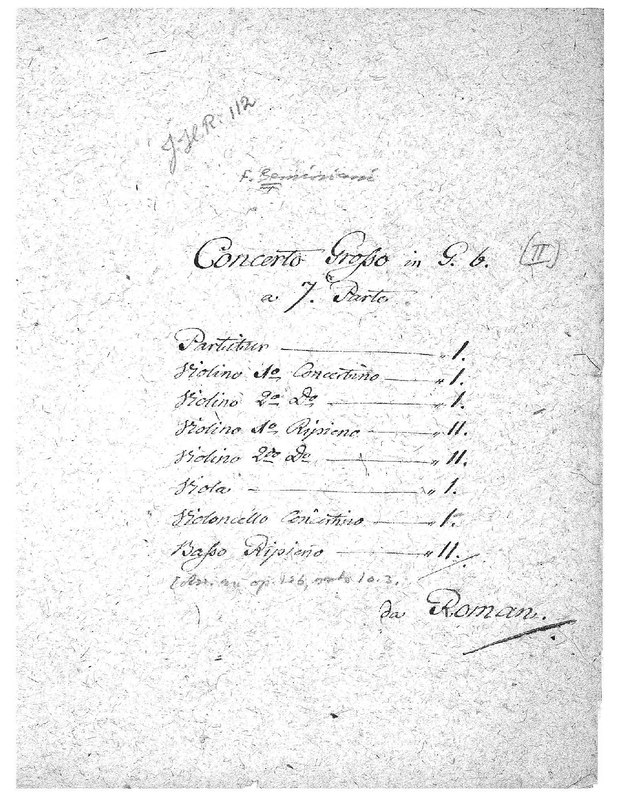 J.H.R. 112
F. Geminiani
Concerto Grosso in G. b. (II)
a 7. Parte
Partitur — " 1.
Violino 1o Concertino — " 1.
Violino 2o Do — " 1.
Violino 1o Ripieno — " 11.
Violino 2do Do — " 11.
Viola — " 1.
Violoncello Concertino — " 1.
Basso Ripieno — " 11.
op.
da Roman.